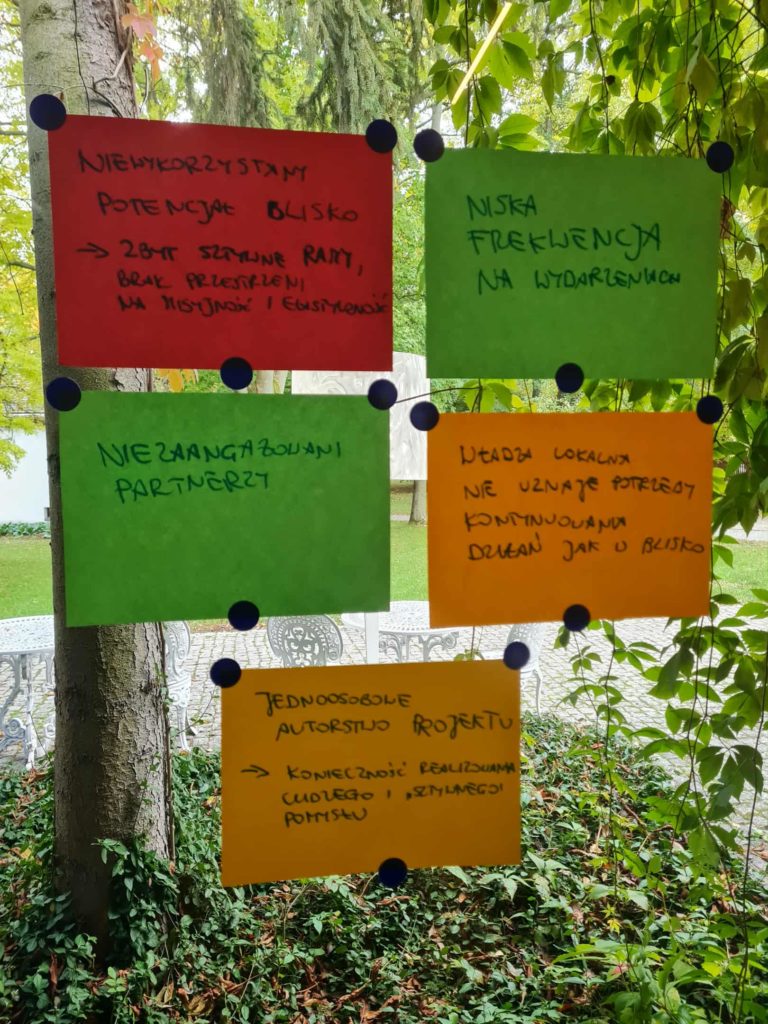 NIEWYKORZYSTANY
POTENCJAŁ BLISKO
→ ZBYT SZTYWNE RAMY,
BRAK PRZESTRZENI
NA MISYJNOŚĆ I ELASTYCZNOŚĆ
NISKA
FREKWENCJA
NA WYDARZENIACH
NIEZAANGAŻOWANI
PARTNERZY
WŁADZA LOKALNA
NIE UZNAJE POTRZEBY
KONTYNUOWANIA
DZIAŁAŃ JAK W BLISKO
JEDNOOSOBOWE
AUTORSTWO PROJEKTU
→ KONIECZNOŚĆ REALIZOWANIA
CUDZEGO I „SZTYWNEGO"
POMYSŁU